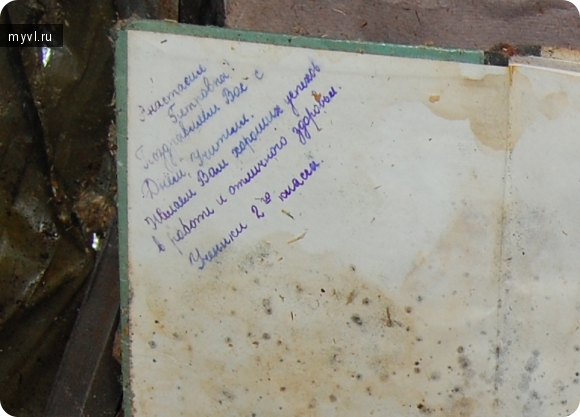 myvl.ru
Анастасия
Петровна!
Поздравляем Вас с
Днём Учителя.
Желаем Вам хороших успехов
в работе и отличного здоровья.
Ученики 2 класса.